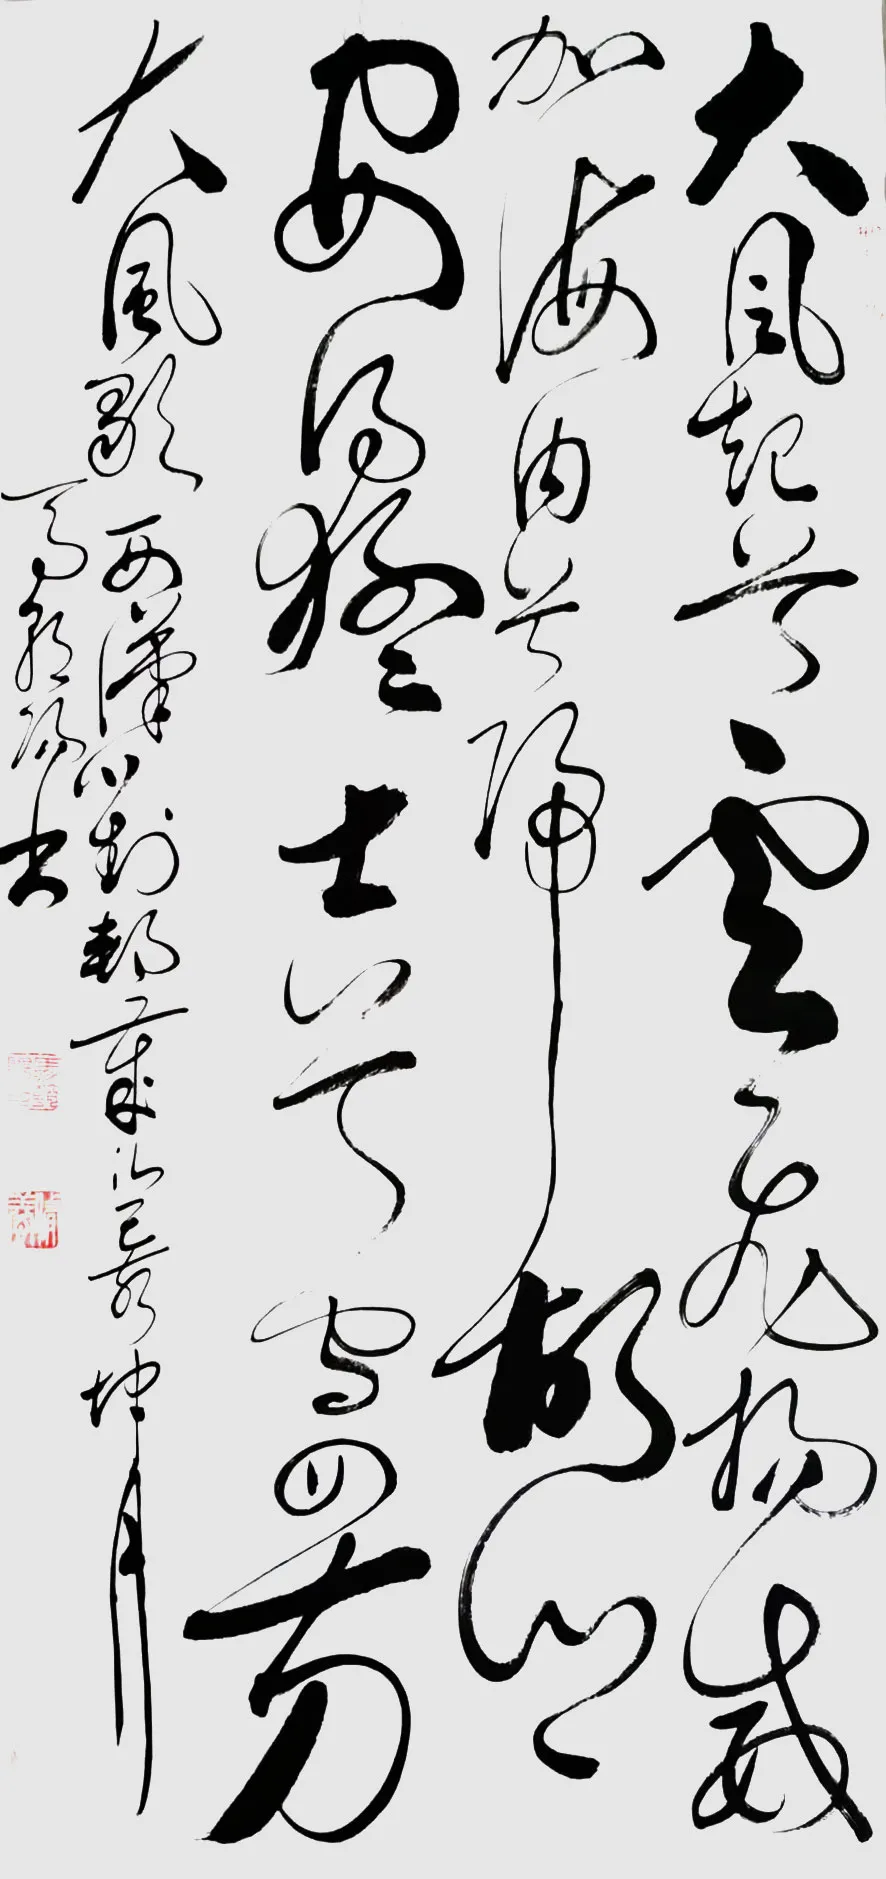 大風起兮雲飛揚威
加海內兮歸故鄉
安得猛士兮守四方
大風歌 西漢劉邦 歲次己亥坤月
書